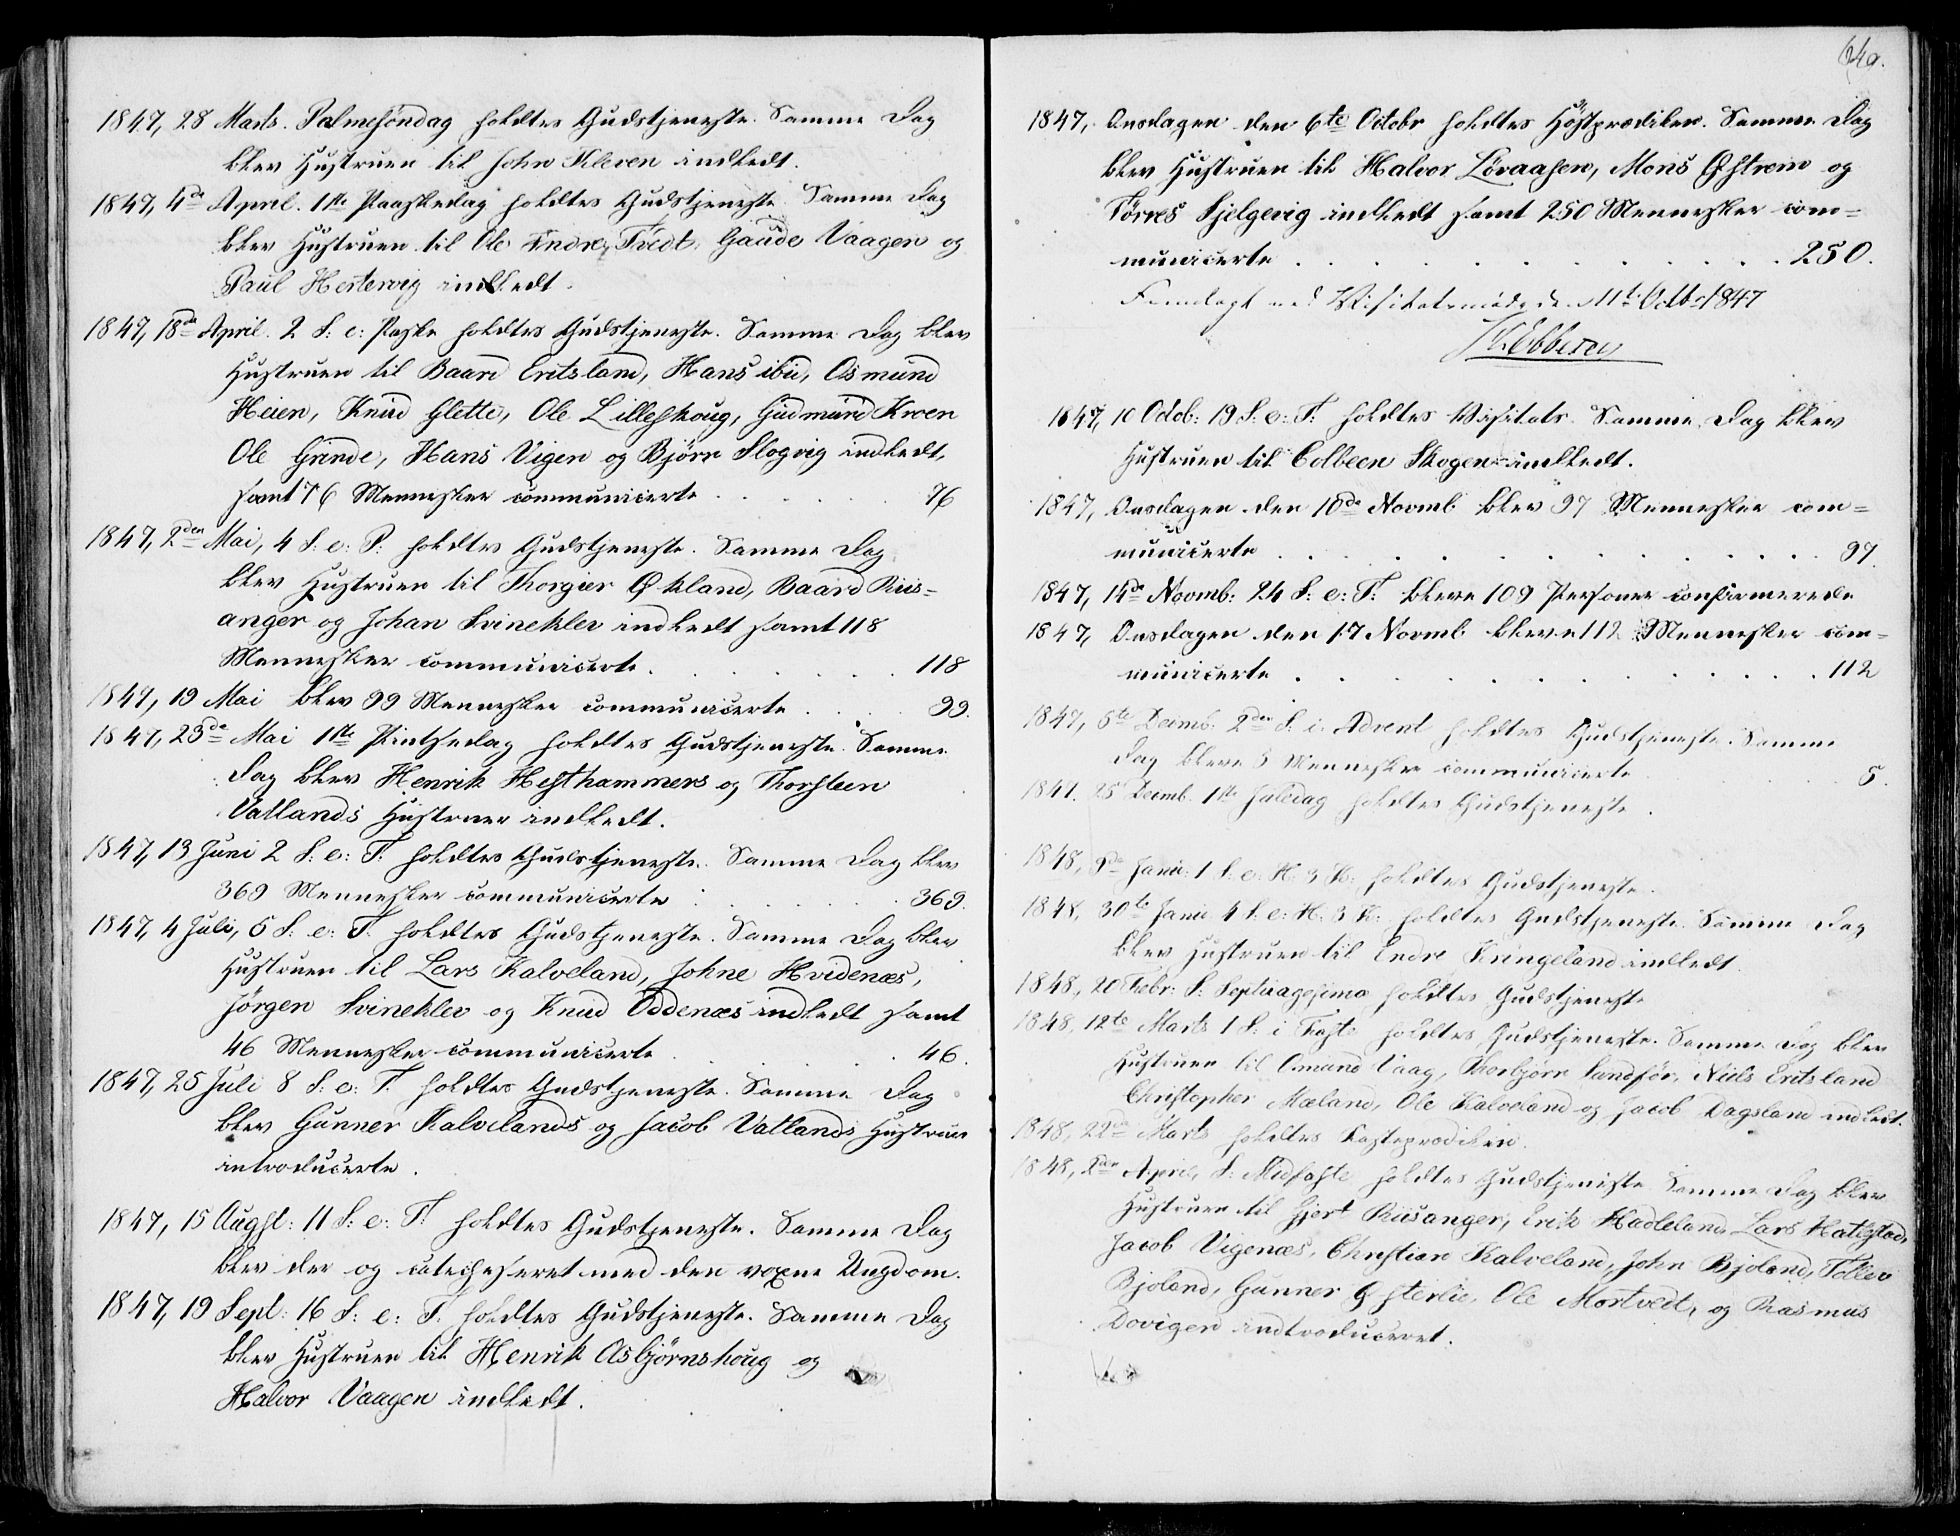 1847, 28 Marts. Palmesöndag holdtes Gudstjeneste. Samme Dag
blev Hustruen til John Kleven indledt.
1847, 4de April. 1ste Paaskedag holdtes Gudstjeneste. Samme Dag
blev Hustruen til Ole Endre Tvedt, Gaude Vaagen og
Paul Hestervig indledt.
1847, 18de April. 2 S: e: Paske holdtes Gudstjeneste. Samme Dag blev
Hustruen til Baard Eritsland, Hans ibid, Osmund
Heien, Knud Glette, Ole Lilleskoug, Gudmund Kroen
Ole Grinde, Hans Vigen og Björn Slogvig indledt,
samt 76 Mennesker communicerte . . . . . 76
1847, 2den Mai, 4 S: e: P: holdtes Gudstjeneste. Samme Dag
blev Hustruen til Thorgier Økland, Baard Riis-
anger og Johan Svinekler indledt samt 118
Mennesker communicerte . . . . . . 118
1847, 19 Mai blev 99 Mennesker communicerte . . . . 99.
1847, 23de Mai 1ste Pintsedag holdtes Gudstjeneste. Samme
Dag blev Henrik Hesthammers og Thorsteen
Vatlands Hustruer indledt.
1847, 13 Juni 2 S: e: T: holdtes Gudstjeneste. Samme Dag blev
369 Mennesker communicerte . . . . . . 369.
1847, 4 Juli, 5 S: e: T: holdtes Gudstjeneste. Samme Dag blev
Hustruen til Lars Kalveland, Johne Hvidenæs,
Jörgen Svinekler og Knud Oddenæs indledt samt
46 Mennesker communicerte . . . . 46.
1847, 25 Juli 8 S: e: T: holdtes Gudstjeneste. Samme Dag
blev Gunner Kalvelands og Jacob Vatlands Hustruer
introducerte.
1847, 15 Augst: 11 S: e: T: holdtes Gudstjeneste. Samme Dag
blev der og catechiseret med den voxne Ungdom.
1847, 19 Sept: 16 S: e: T: holdtes Gudstjeneste. Samme Dag
blev Hustruen til Henrik Asbjörnshoug og
Halvor Vaagen indledt.
1847, Onsdagen den 6te Octobr holdtes Höstprædiken. Samme Dag
blev Hustruen til Halvor Lövaasen, Mons Østrem og
Törres Sjelgevig indledt samt 250 Mennesker com=
municerte . . . . . . . . . . 250.
Fremlagt ved Visitatsmöde den 11te Octbr 1847
1847, 10 Octob: 19 S: e: T: holdtes Visitats. Samme Dag blev
Hustruen til Colbeen Skogen indledt.
1847, Onsdagen den 10de Novmb blev 97 Mennesker com=
municerte . . . . . . . . . . 97.
1847, 14de Novmb: 24 S: e: T: bleve 109 Personer confirmerede
1847, Onsdagen den 17 Novmb bleve 112 Mennesker com=
municerte . . . . . . . . . . 112
1847, 5te Decmb: 2den S: i Advent holdtes Gudstjeneste. Samme
Dag bleve 5 Mennesker communicerte 5.
1847. 25 Decmb. 1ste Juledag holdtes Gudstjeneste.
1848, 9de Janu: 1 S: e: H: 3 K: holdtes Gudstjeneste.
1848, 30te Janu 4 S: e: H: 3 K: holdtes Gudstjeneste. Samme Dag
blev Hustruen til Endre Kringeland indledt.
1848, 20 Febr: S: Septuagesima holdtes Gudstjeneste
1848, 12te Marts 1 S: i Faste holdtes Gudstjeneste. Samme Dag blev
Hustruen til Omund Vaag, Thorbjörn Sandför, Niels Eritsland
Christopher Mæland, Ole Kalveland og Jacob Dagsland indledt.
1848, 22de Marts holdtes Fasteprædiken.
1848, 2den April, S: Midfaste holdtes Gudstjeneste. Samme Dag blev
Hustruen til Gjert Riisanger, Erik Hadleland, Lars Hatlestad,
Jacob Vigenæs, Christian Kalveland, John Bjoland, Tollev
Bjoland, Gunner Østerlie, Ole Mortvedt, og Rasmus
Dovigen indtroduceret.